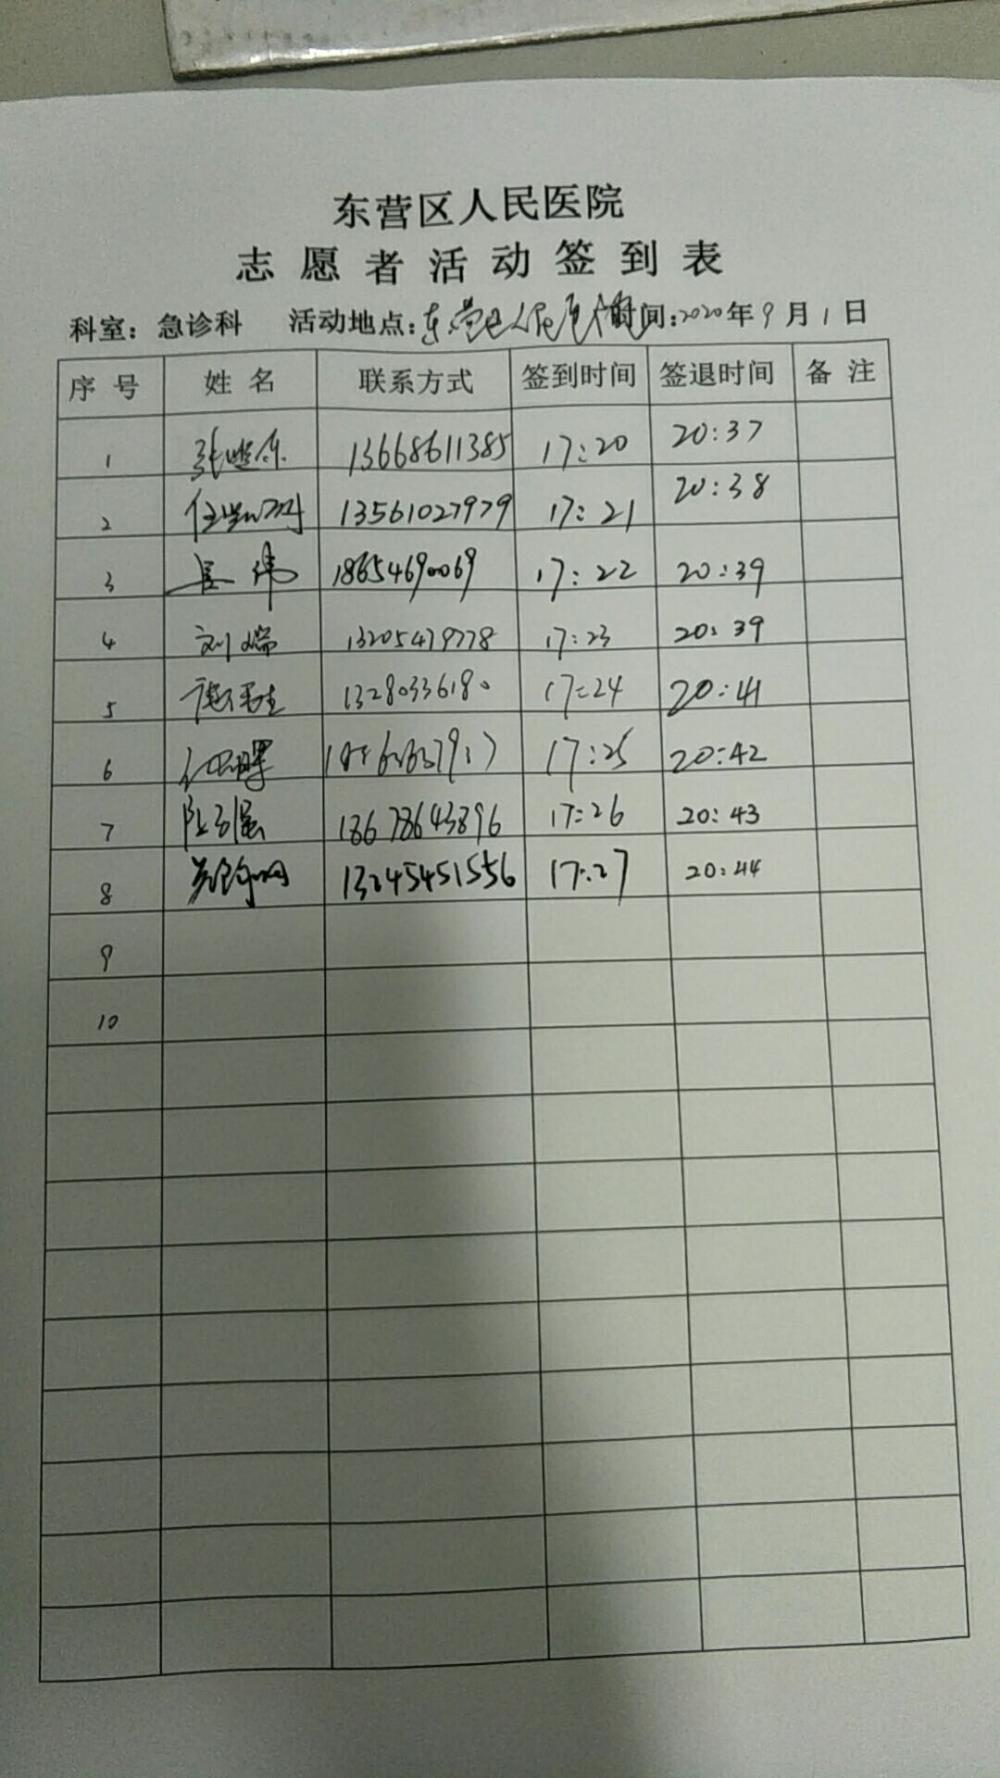 东营区人民医院
志愿者活动签到表
科室：急诊科 活动地点：东营区人民医院 时间：2020年9月1日
序号 姓名 联系方式 签到时间 签退时间 备注
1 13668611385 17:20 20:37
2 13561027979 17:21 20:38
3 18654690069 17:22 20:39
4 刘瑞 13205479778 17:23 20:39
5 13280336180 17:24 20:41
6 17:25 20:42
7 18678643896 17:26 20:43
8 13245451556 17:27 20:44
9
10